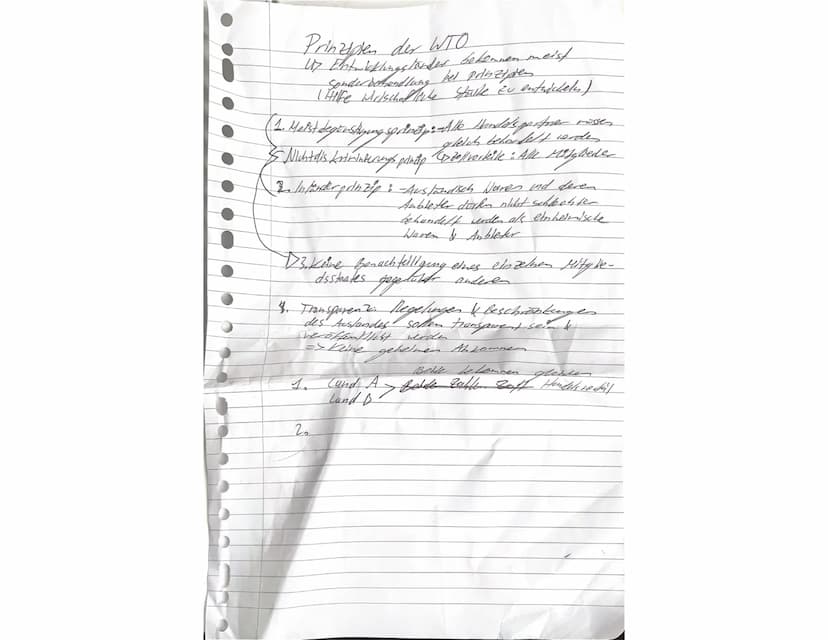 Prinzipien der WTO
↳ Entwicklungsländer bekommen meist
sonderbehandlung bei prinzipien
(Hilfe wirtschaftliche Stärke zu entwickeln)
1. Meistbegünstigungsprinzip: - Alle Handelspartner müssen
gleich behandelt werden
Nichtdiskriminierungsprinzip ↳ Zollvorteile: Alle Mitglieder
2. Inländerprinzip: - Ausländisch Waren und deren
Anbieter dürfen nicht schlechter
behandelt werden als einheimische
Waren & Anbieter
3. Keine Benachteiligung eines einzelnen Mitglie-
dsstaates gegenüber anderen
4. Transparenz: Regelungen & Beschränkungen
des Auslandes sollen transparent sein &
veröffentlicht werden
=> Keine geheimen Abkommen
Beide bekommen gleichen
1. Land A > Beide zahlen Handelsvorteil
Land B
2.